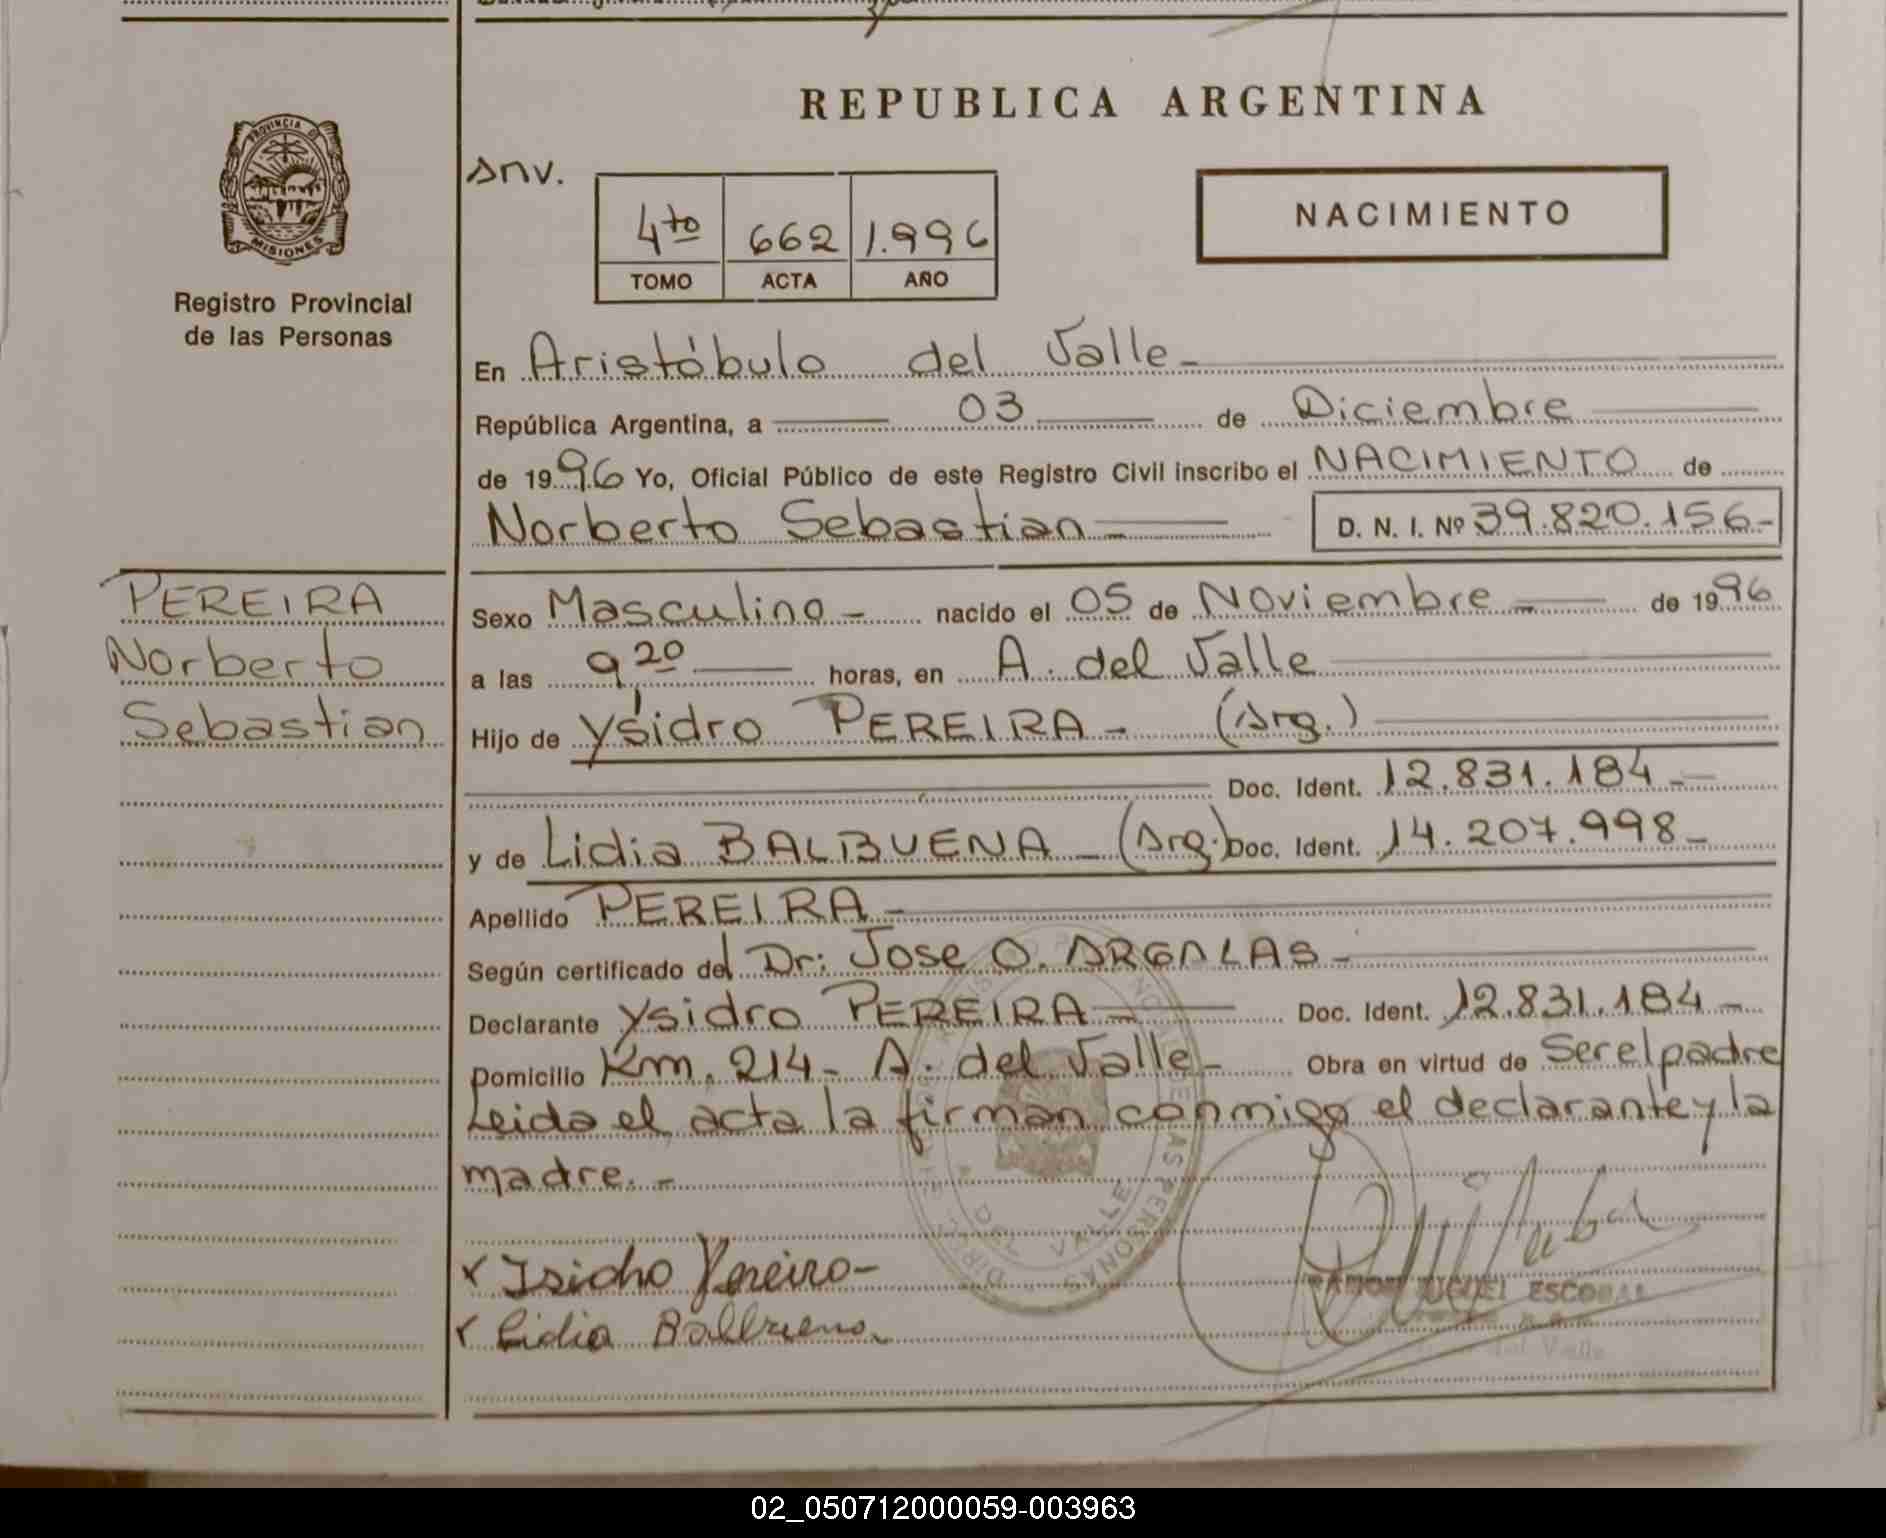 REPUBLICA ARGENTINA
PROVINCIA D
MISIONES
Registro Provincial
de las Personas
Anv.
4to 662 1.996
TOMO ACTA AÑO
NACIMIENTO
En Aristóbulo del Valle -
República Argentina, a 03 de Diciembre
de 1996 Yo, Oficial Público de este Registro Civil inscribo el NACIMIENTO de
Norberto Sebastian - D. N. I. Nº 39.820.156-
PEREIRA
Norberto
Sebastian
Sexo Masculino - nacido el 05 de Noviembre - de 1996
a las 9,20 horas, en A. del Valle
Hijo de Ysidro PEREIRA - (Arg.)
Doc. Ident. 12.831.184 -
y de Lidia BALBUENA - (Arg.) Doc. Ident. 14.207.998 -
Apellido PEREIRA -
Según certificado del Dr: Jose O. ARGALAS -
Declarante Ysidro PEREIRA - Doc. Ident. 12.831.184 -
Domicilio Km. 214 - A. del Valle - Obra en virtud de Ser el padre
Leida el acta la firman conmigo el declarante y la
madre. -
x Isidro Pereira -
x Lidia Balbuena
RAMON MIGUEL ESCOBAR
del Valle
A. DEL VALLE
DE LAS PERSONAS
02_050712000059-003963